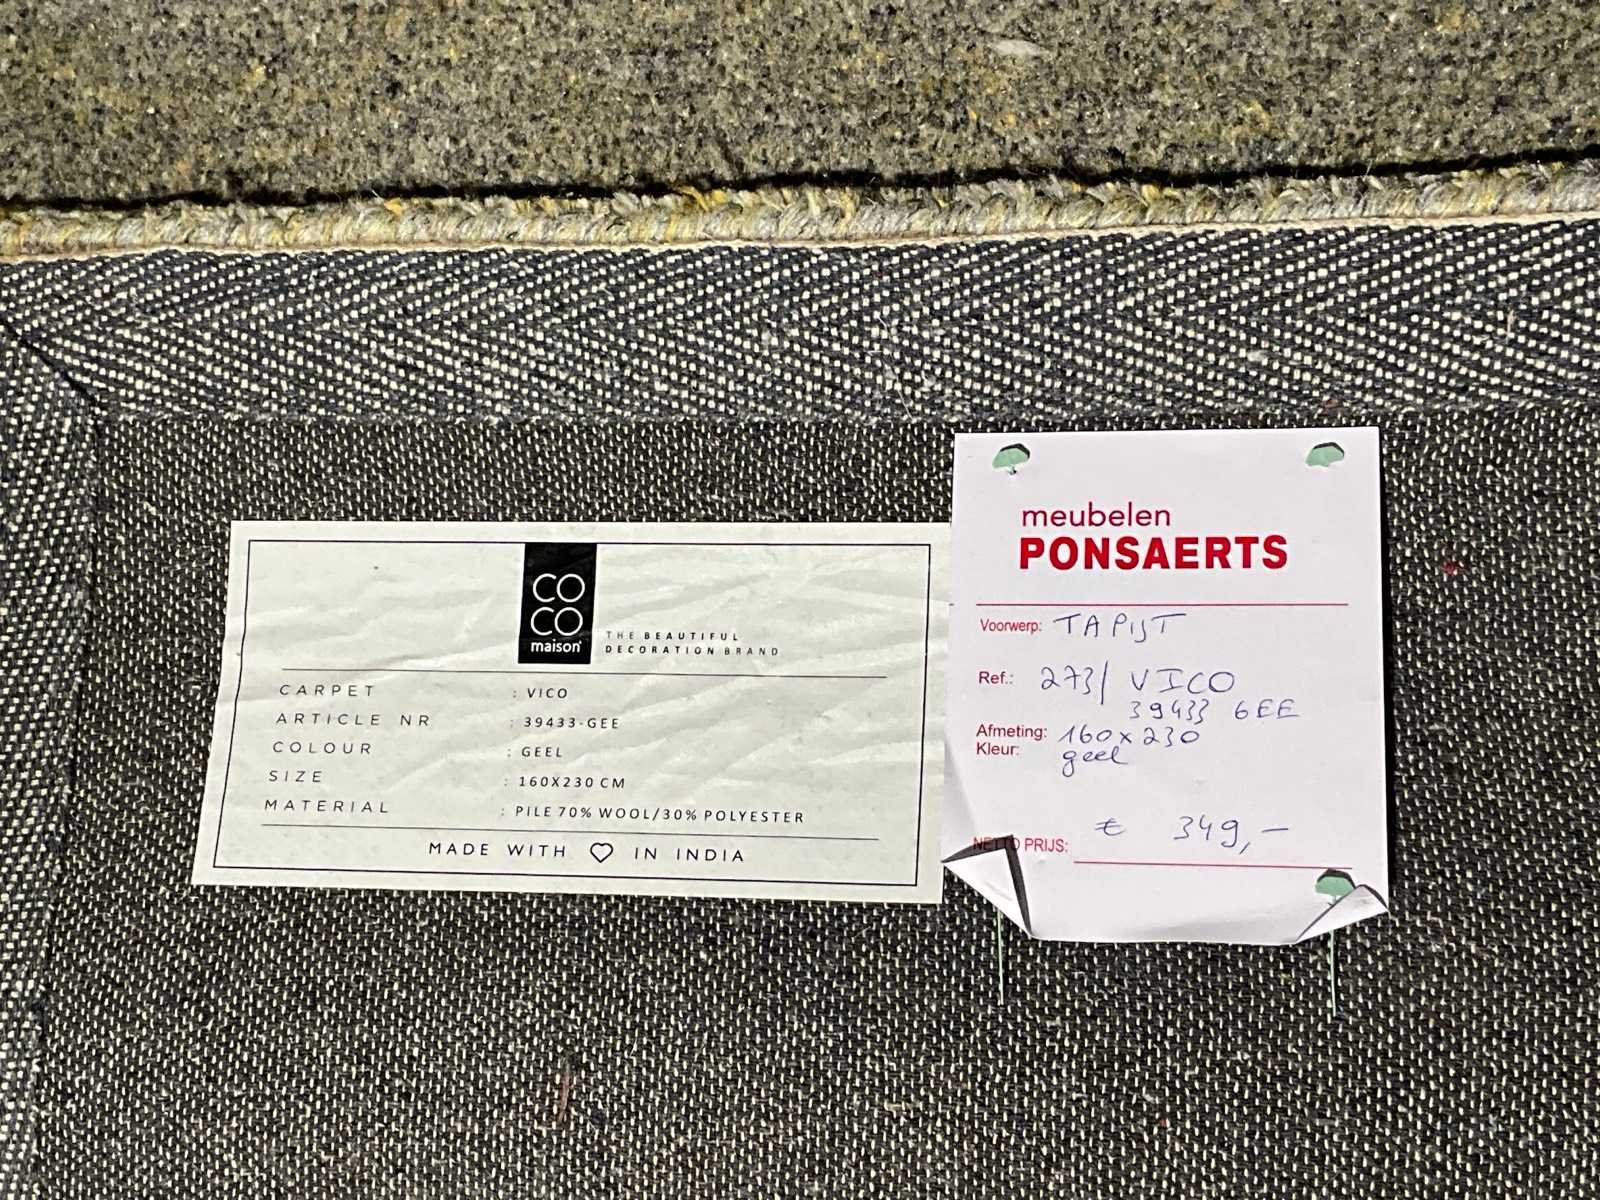 CO
CO
maison
THE BEAUTIFUL
DECORATION BRAND
CARPET : VICO
ARTICLE NR : 39433-GEE
COLOUR : GEEL
SIZE : 160X230 CM
MATERIAL : PILE 70% WOOL/30% POLYESTER
MADE WITH ♡ IN INDIA
meubelen
PONSAERTS
Voorwerp: TAPIJT
Ref.: 273/ VICO
39433 GEE
Afmeting: 160x230
Kleur: geel
NETTO PRIJS: € 349,-